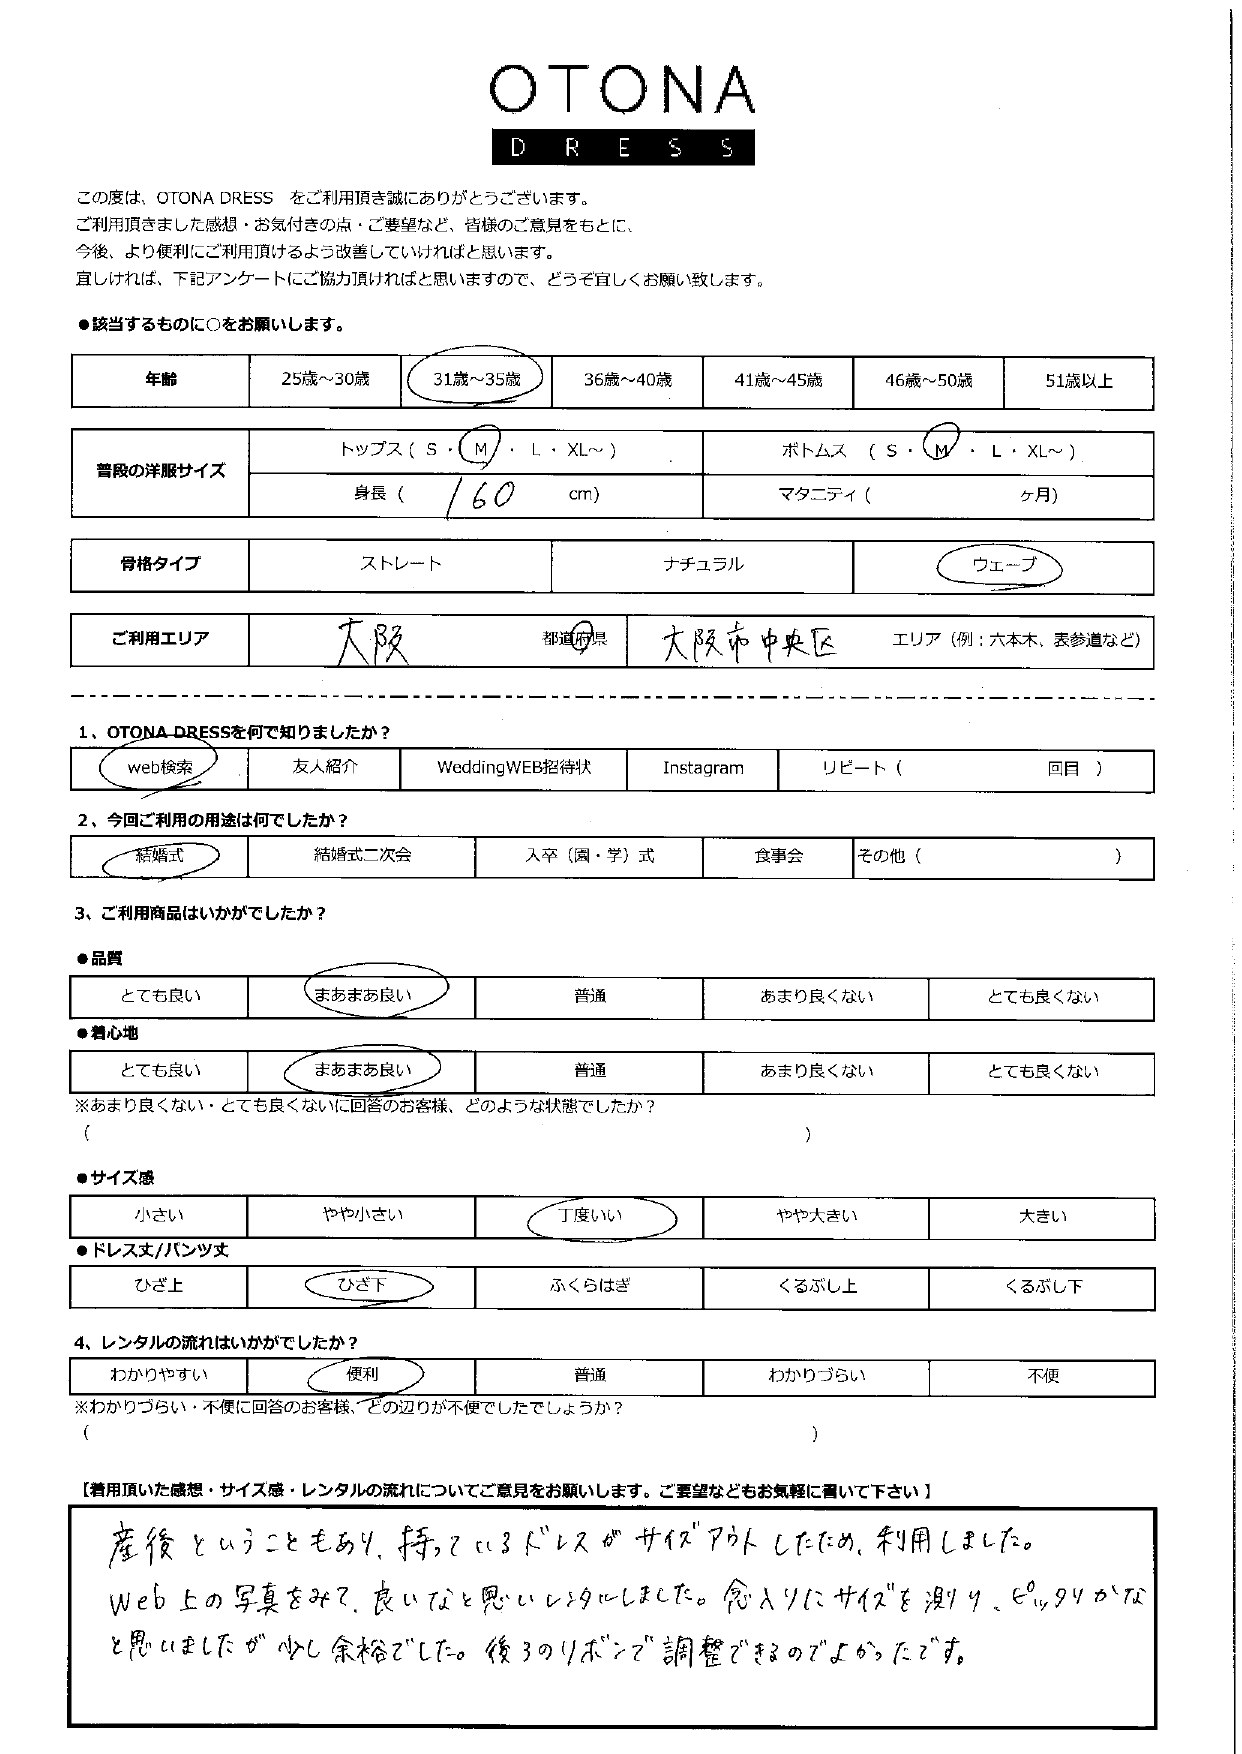 OTONA
DRESS
この度は、OTONA DRESS をご利用頂き誠にありがとうございます。
ご利用頂きました感想・お気付きの点・ご要望など、皆様のご意見をもとに、
今後、より便利にご利用頂けるよう改善していければと思います。
宜しければ、下記アンケートにご協力頂ければと思いますので、どうぞ宜しくお願い致します。
●該当するものに○をお願いします。
年齢 25歳～30歳 31歳～35歳 36歳～40歳 41歳～45歳 46歳～50歳 51歳以上
普段の洋服サイズ トップス ( S ・ M ・ L ・ XL～ ) ボトムス ( S ・ M ・ L ・ XL～ )
身長 ( 160 cm) マタニティ ( ヶ月)
骨格タイプ ストレート ナチュラル ウェーブ
ご利用エリア 大阪 都道府県 大阪市中央区 エリア（例：六本木、表参道など）
1、OTONA DRESSを何で知りましたか？
web検索 友人紹介 WeddingWEB招待状 Instagram リピート ( 回目 )
2、今回ご利用の用途は何でしたか？
結婚式 結婚式二次会 入卒（園・学）式 食事会 その他 ( )
3、ご利用商品はいかがでしたか？
●品質
とても良い まあまあ良い 普通 あまり良くない とても良くない
●着心地
とても良い まあまあ良い 普通 あまり良くない とても良くない
※あまり良くない・とても良くないに回答のお客様、どのような状態でしたか？
( )
●サイズ感
小さい やや小さい 丁度いい やや大きい 大きい
●ドレス丈/パンツ丈
ひざ上 ひざ下 ふくらはぎ くるぶし上 くるぶし下
4、レンタルの流れはいかがでしたか？
わかりやすい 便利 普通 わかりづらい 不便
※わかりづらい・不便に回答のお客様、どの辺りが不便でしたでしょうか？
( )
【着用頂いた感想・サイズ感・レンタルの流れについてご意見をお願いします。ご要望などもお気軽に書いて下さい】
産後ということもあり、持っているドレスがサイズアウトしたため、利用しました。
Web上の写真をみて、良いなと思いレンタルしました。念入りにサイズを測り、ピッタリかな
と思いましたが少し余裕でした。後ろのリボンで調整できるのでよかったです。